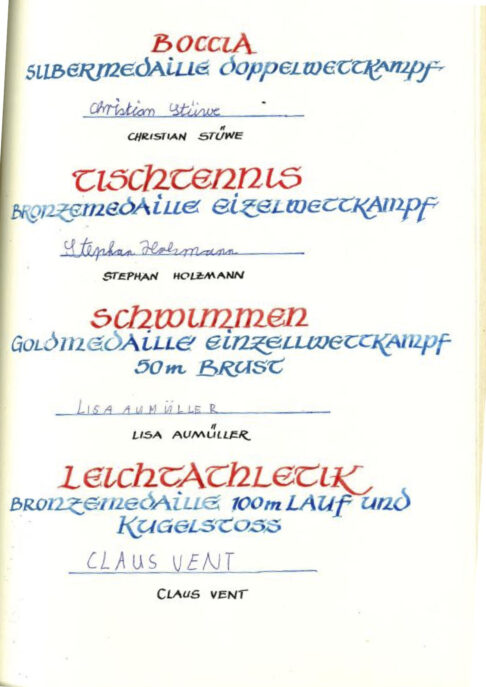 BOCCIA
SILBERMEDAILLE DOPPELWETTKAMPF
Christian Stüwe
CHRISTIAN STÜWE
TISCHTENNIS
BRONZEMEDAILLE EIZELWETTKAMPF
Stephan Holzmann
STEPHAN HOLZMANN
SCHWIMMEN
GOLDMEDAILLE EINZELLWETTKAMPF
50m BRUST
LISA AUMÜLLER
LISA AUMÜLLER
LEICHTATHLETIK
BRONZEMEDAILLE 100m LAUF UND
KUGELSTOSS
CLAUS VENT
CLAUS VENT